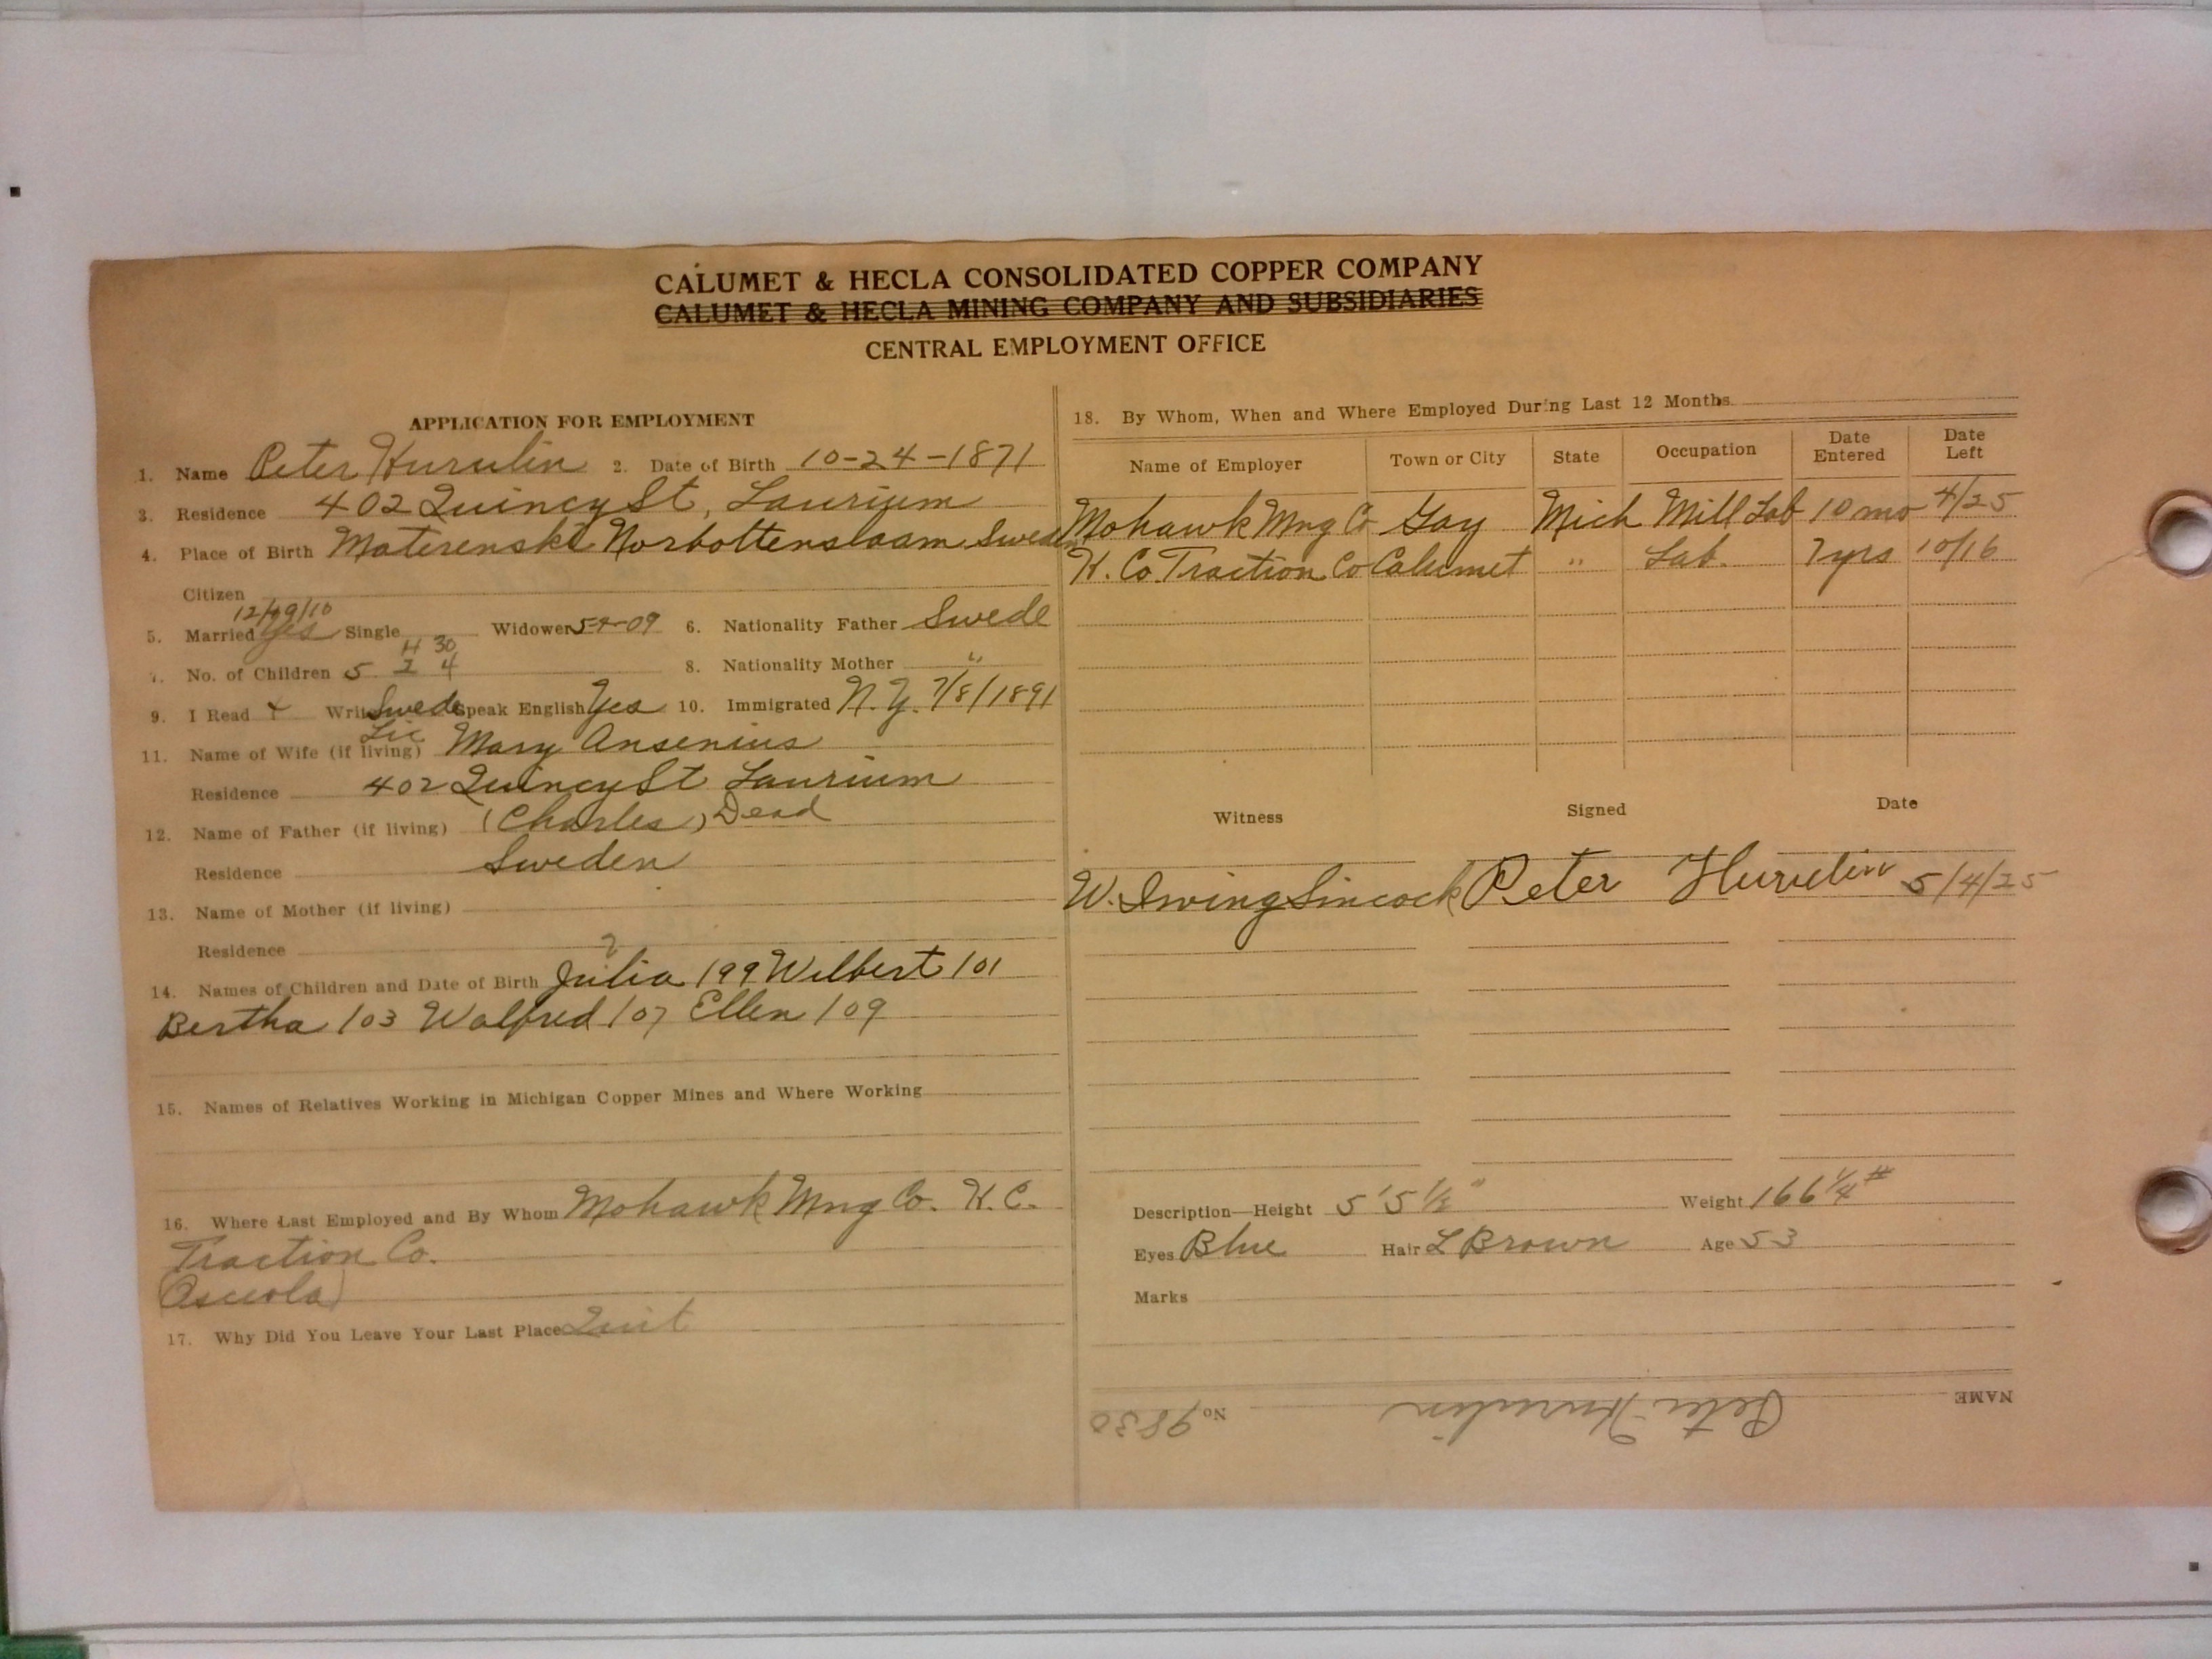 CALUMET & HECLA CONSOLIDATED COPPER COMPANY
CALUMET & HECLA MINING COMPANY AND SUBSIDIARIES
CENTRAL EMPLOYMENT OFFICE
APPLICATION FOR EMPLOYMENT
1. Name Peter Hurulin 2. Date of Birth 10-24-1871
3. Residence 402 Quincy St, Laurium
4. Place of Birth Materenski Norbottenslaam Sweden
Citizen
12/19/10
5. Married Yes Single Widower 5-4-09 6. Nationality Father Swede
4 30
7. No. of Children 5 2 4 8. Nationality Mother "
9. I Read + Write Swede Speak English Yes 10. Immigrated N.Y. 7/8/1891
11. Name of Wife (if living) Mary Ansenius
Residence 402 Quincy St Laurium
12. Name of Father (if living) (Charles) Dead
Residence Sweden
13. Name of Mother (if living)
Residence
?
14. Names of Children and Date of Birth Julia 199 Wilbert 101
Bertha 103 Walfred 107 Ellen 109
15. Names of Relatives Working in Michigan Copper Mines and Where Working
16. Where Last Employed and By Whom Mohawk Mng Co. K.C.
Traction Co.
(Osceola)
17. Why Did You Leave Your Last Place Quit
18. By Whom, When and Where Employed During Last 12 Months
Name of Employer Town or City State Occupation Date Entered Date Left
Mohawk Mng Co Gay Mich Mill Lab 10 mo 4/25
K. Co. Traction Co Calumet " Lab. 7 yrs 10/16
Witness Signed Date
W. Irwing Sincock Peter Hurulin 5/4/25
Description—Height 5'5½" Weight 166¼#
Eyes Blue Hair L Brown Age 53
Marks
NAME Peter Hurulin No. 9830